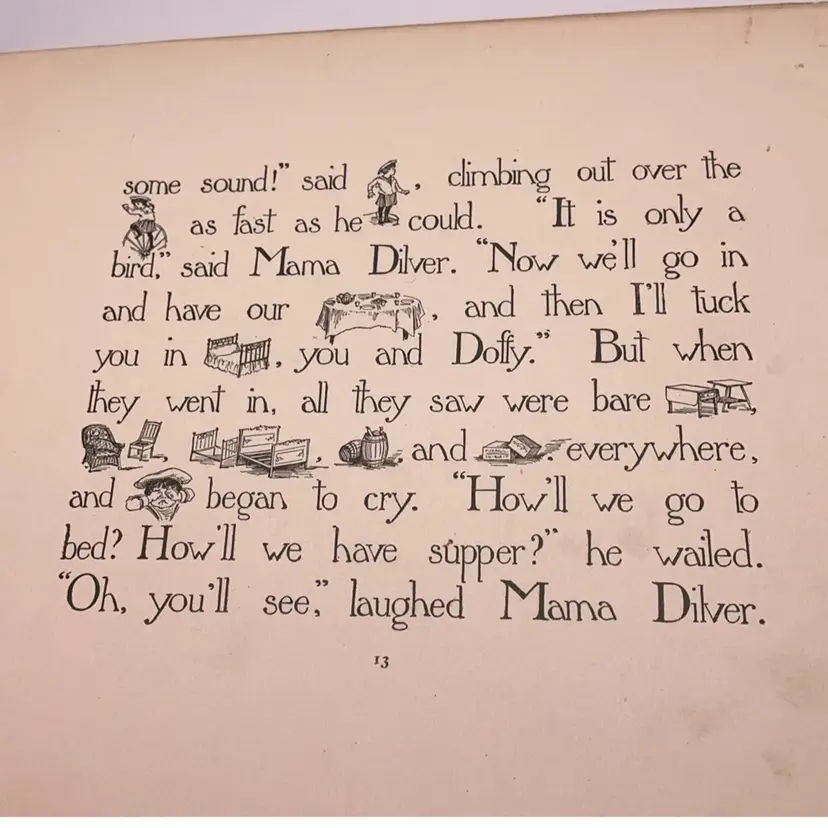 some sound!" said , climbing out over the
as fast as he could. "It is only a
bird," said Mama Dilver. "Now we'll go in
and have our , and then I'll tuck
you in , you and Doffy." But when
they went in, all they saw were bare ,
, , and . everywhere,
and began to cry. "How'll we go to
bed? How'll we have supper?" he wailed.
"Oh, you'll see," laughed Mama Dilver.
13